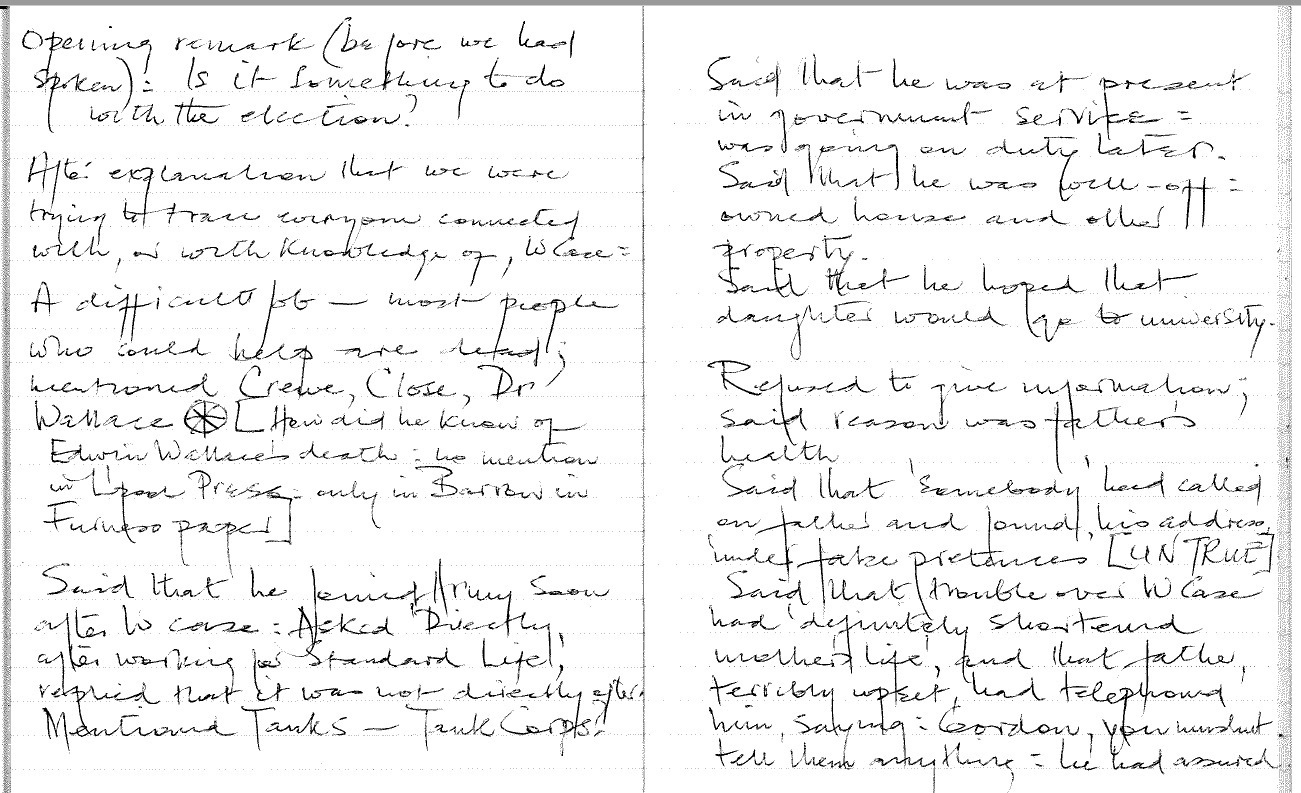 Opening remark (before we had
spoken) = Is it something to do
with the election?
After explanation that we were
trying to trace everyone connected
with, or with knowledge of, W Case =
A difficult job — most people
who could help are dead;
mentioned Crewe, Close, Dr
Wallace [How did he know of
Edwin Wallace's death = no mention
in L'pool Press = only in Barrow in
Furness paper]
Said that he joined Army soon
after W case = Asked 'Directly,
after working for Standard Life',
replied that it was not directly after.
Mentioned Tanks — Tank Corps?
Said that he was at present
in government service =
was going on duty later.
Said that he was well-off =
owned house and other
property.
Said that he hoped that
daughter would go to university.
Refused to give information;
said reason was father's
health
Said that 'somebody' had called
on father and found his address
under fake pretences [UNTRUE]
Said that trouble over W Case
had 'definitely shortened
mother's life', and that father,
terribly upset, had telephoned
him, saying = Gordon, you mustnt
tell them anything = he had assured